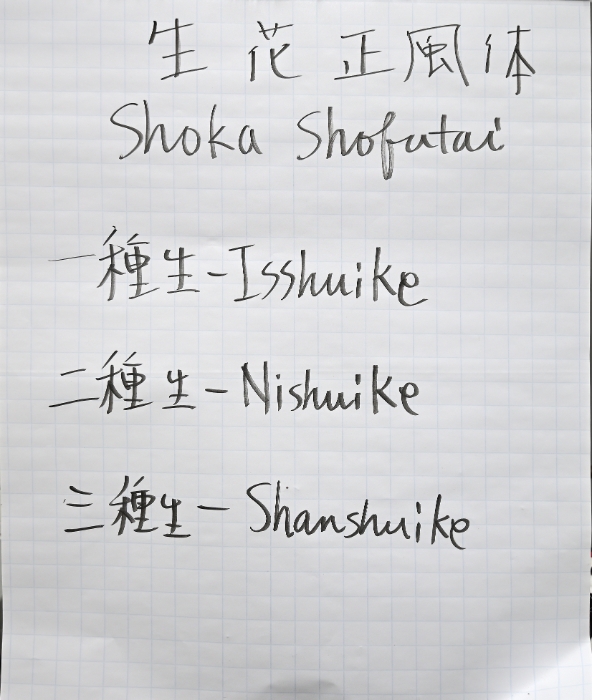 生花正風体
Shoka Shofutai
一種生-Isshuike
二種生-Nishuike
三種生-Shanshuike